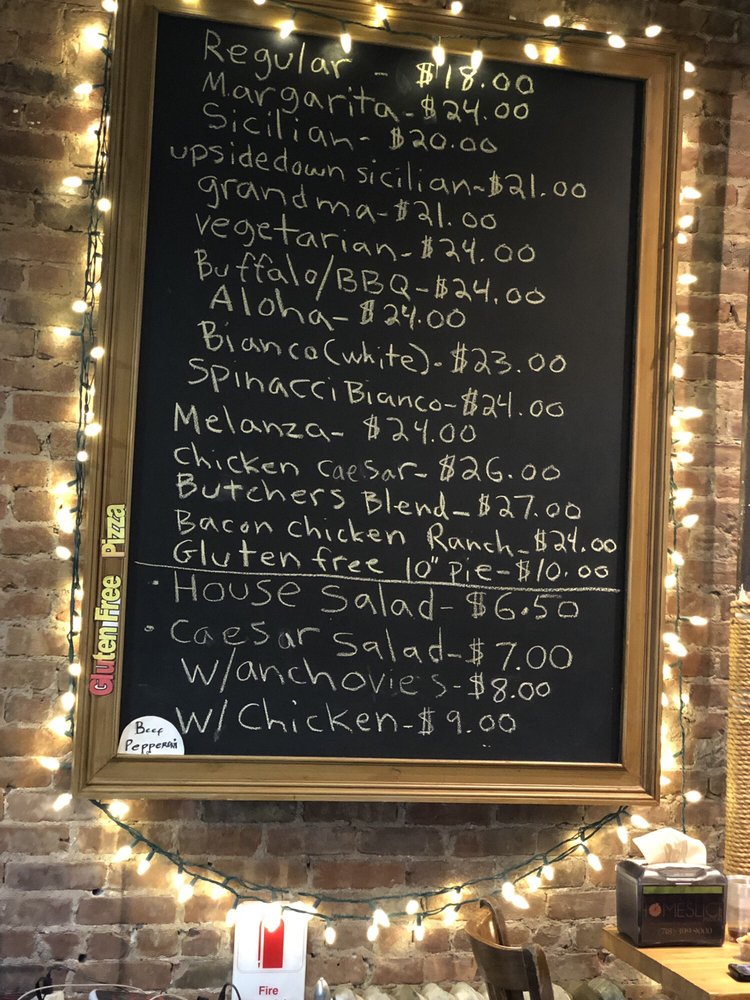 Regular - $18.00
Margarita- $24.00
Sicilian- $20.00
upsidedown sicilian- $21.00
grandma- $21.00
vegetarian- $24.00
Buffalo/BBQ- $24.00
Aloha- $24.00
Bianco (white)- $23.00
Spinacci Bianco- $24.00
Melanza- $24.00
chicken caesar- $26.00
Butchers Blend- $27.00
Bacon chicken Ranch- $24.00
Gluten free 10" pie- $10.00
· House Salad- $6.50
· Caesar Salad- $7.00
w/anchovies- $8.00
w/ Chicken- $9.00
Gluten Free Pizza
Beef
Pepperoni
Fire
HOMESLICE